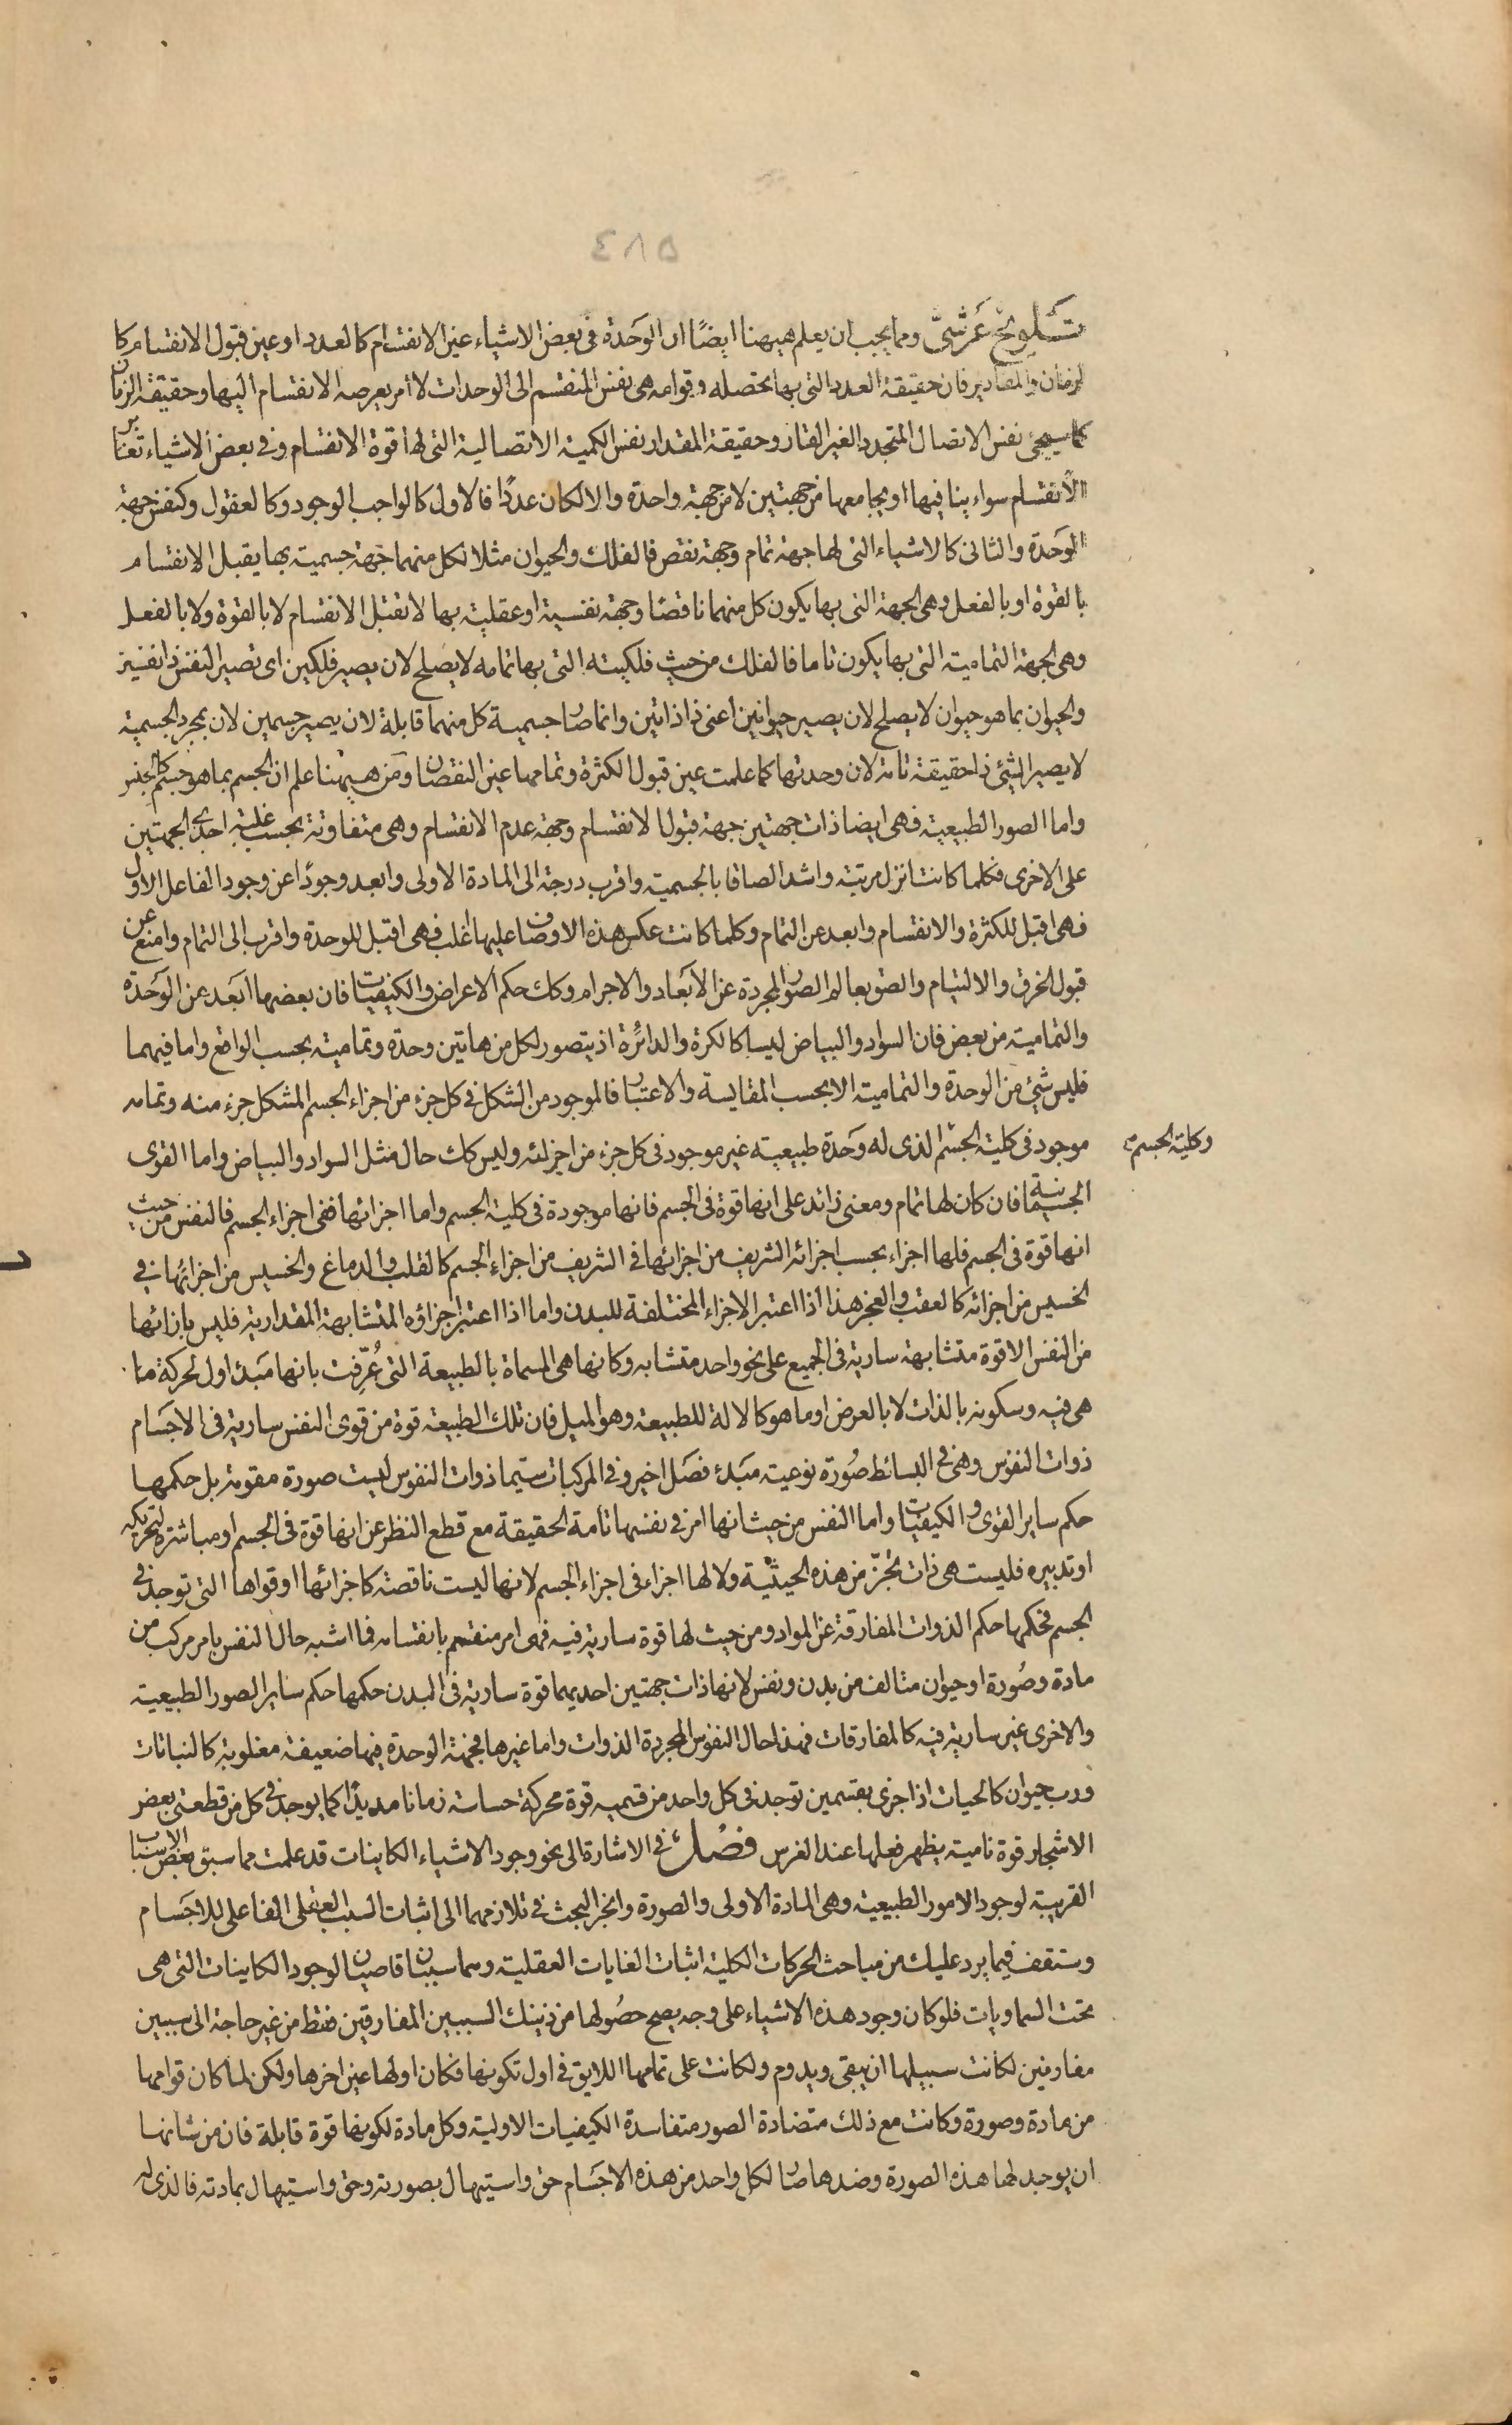 ٤٨٥
تلويح عرشي ومما يجب ان يعلم هيهنا ايضًا ان الوحدة فى بعض الاشياء عين الانقسام كالعدد او عين قبول الانقسام كا
لزمان والمقادير فان حقيقة العدد التى بها تحصله وقوامه هى نفس المنقسم الى الوحدات لا أمر يعرضه الانقسام اليها وحقيقة الزمان
كما سيجئ نفس الاتصال المتجدد الغير القار وحقيقة المقدار نفس الكمية الاتصالية التى لها قوة الانقسام وفى بعض الاشياء تغاير
الانقسام سواء ينافيها او يجامعها من جهتين لا من جهة واحدة والا لكان عددًا فالاول كالواجب الوجود وكالعقول وكنفس جهة
الوحدة والثانى كالاشياء التى لها جهة تمام وجهة نقص فالفلك والحيوان مثلا لكل منهما جهة جسمية بها يقبل الانقسام
بالقوة او بالفعل وهى الجهة التى بها يكون كل منهما ناقصًا وجهة نفسية او عقلية بها لا تقبل الانقسام لا بالقوة ولا بالفعل
وهى الجهة التمامية التى بها يكون تاما فالفلك من حيث فلكيته التى بها تمامه لا يصلح لان يصير فلكين اى تصير النفس ذا نفسين
والحيوان بما هو حيوان لا يصلح لان يصير حيوانين اعنى ذا ذاتين وانما صار جسمية كل منهما قابلة لان يصير جسمين لان بمجرد الجسمية
لا يصير الشئ ذا حقيقة تامة لان وحدتها كما علمت عين قبول الكثرة وتمامها عين النقصان ومن هيهنا علم ان الجسم بما هو جسم كالجنس
واما الصور الطبيعية فهى ايضا ذات جهتين جهة قبول الانقسام وجهة عدم الانقسام وهى متفاوتة بحسب غلبة احدى الجهتين
على الاخرى فكلما كانت انزل مرتبة واشد الصاقا بالجسمية واقرب درجة الى المادة الاولى وابعد وجودًا عن وجود الفاعل الاول
فهى اقبل للكثرة والانقسام وابعد عن التمام وكلما كانت عكس هذه الاوصاف عليها اغلب فهى اقبل للوحدة واقرب الى التمام وامنع عن
قبول الخرق والالتيام والصق بعالم الصور المجردة عن الابعاد والاجرام وكك حكم الاعراض والكيفيات فان بعضها ابعد عن الوحدة
والتمامية من بعض فان السواد والبياض ليسا كالكرة والدائرة اذ يتصور لكل من هاتين وحدة وتمامية بحسب الواقع واما فيهما
فليس شئ من الوحدة والتمامية الا بحسب المقايسة والاعتبار فالموجود من الشكل فى كل جزء من اجزاء الجسم المشكل جزء منه وتمامه
موجود فى كلية الجسم الذى له وحدة طبيعية غير موجود فى كل جزء من اجزائه وليس كك حال مثل السواد والبياض واما القوى
وكلية الجسم
الجسمانية فان كان لها تمام ومعنى زائد على انها قوة فى الجسم فانها موجودة فى كلية الجسم واما اجزائها ففى اجزاء الجسم فالنفس من حيث
انها قوة فى الجسم فلها اجزاء بحسب اجزائه الشريف من اجزائها فى الشريف من اجزاء الجسم كالقلب والدماغ والخسيس من اجزائها فى
الخسيس من اجزائه كالعقب والعجز هذا اذا اعتبر الاجزاء المختلفة للبدن واما اذا اعتبر اجزاؤه المتشابهة المقدارية فليس بازائها
من النفس الا قوة متشابهة سارية فى الجميع على نحو واحد متشابه وكانها هى المسماة بالطبيعة التى عُرّفت بانها مبدء اول لحركة ما
هى فيه وسكونه بالذات لا بالعرض او ما هو كالالة للطبيعة وهو الميل فان تلك الطبيعة قوة من قوى النفس سارية فى الاجسام
ذوات النفوس وهى فى البسائط صورة نوعية مبدء فصل اخير وفى المركبات سيما ذوات النفوس ليست صورة مقومة بل حكمها
حكم ساير القوى والكيفيات واما النفس من حيث انها امر فى نفسها تامة الحقيقة مع قطع النظر عن انها قوة فى الجسم او مباشرة لتحريكه
او تدبيره فليست هى ذات تجزّ من هذه الحيثية ولا لها اجزاء فى اجزاء الجسم لانها ليست ناقصة كاجزائها او قواها التى توجد فى
الجسم فحكمها حكم الذوات المفارقة عن المواد ومن حيث لها قوة سارية فيه فهى امر منقسم بانقسامه فما اشبه حال النفس بامر مركب من
مادة وصورة او حيوان متالف من بدن ونفس لانها ذات جهتين احديهما قوة سارية فى البدن حكمها حكم ساير الصور الطبيعية
والاخرى غير سارية فيه كالمفارقات فهذا حال النفوس المجردة الذوات واما غيرها فجهة الوحدة فيها ضعيفة مغلوبة كالنباتات
ورب حيوان كالحيات اذا جزى بقسمين توجد فى كل واحد من قسميه قوة محركة حساسة زمانا مديدًا كما يوجد فى كل من قطعتى بعض
الاشجار قوة نامية يظهر فعلها عند الغرس فصل فى الاشارة الى نحو وجود الاشياء الكاينات قد علمت مما سبق بعض الاسباب
القريبة لوجود الامور الطبيعية وهى المادة الاولى والصورة وانجر البحث فى تلازمهما الى اثبات السبب العقلى الفاعلى للاجسام
وستقف فيما يرد عليك من مباحث الحركات الكلية اثبات الغايات العقلية وهما سببان قاصيان لوجود الكاينات التى هى
تحت السماويات فلو كان وجود هذه الاشياء على وجه يصح حصولها من ذينك السببين المفارقين فقط من غير حاجة الى سببين
مقارنين لكانت سبيلها ان يبقى ويدوم ولكانت على تمامها اللايق فى اول تكونها فكان اولها عين اخرها ولكن لما كان قوامها
من مادة وصورة وكانت مع ذلك متضادة الصور متفاسدة الكيفيات الاولية وكل مادة لكونها قوة قابلة فان من شانها
ان يوجد لها هذه الصورة وضدها صار لكل واحد من هذه الاجسام حق واستيهال بصورته وحق واستيهال بمادته فالذى له